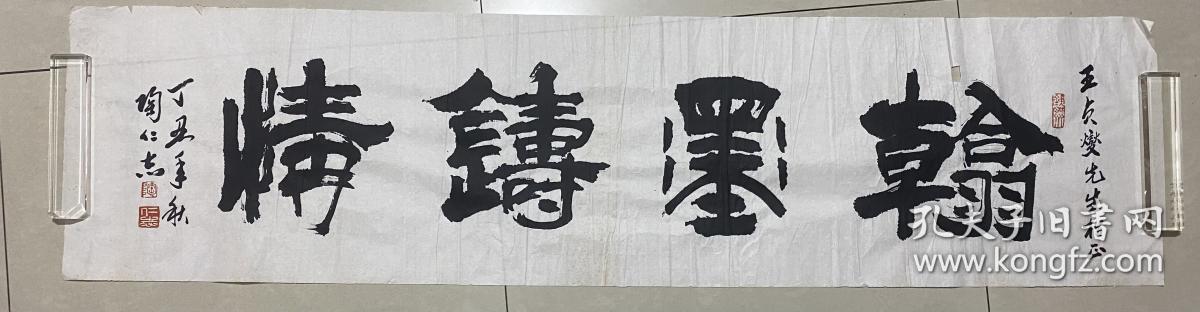 王贞燮先生指正
翰墨鑄情
丁丑年秋
陶仁志
孔夫子旧书网
www.kongfz.com